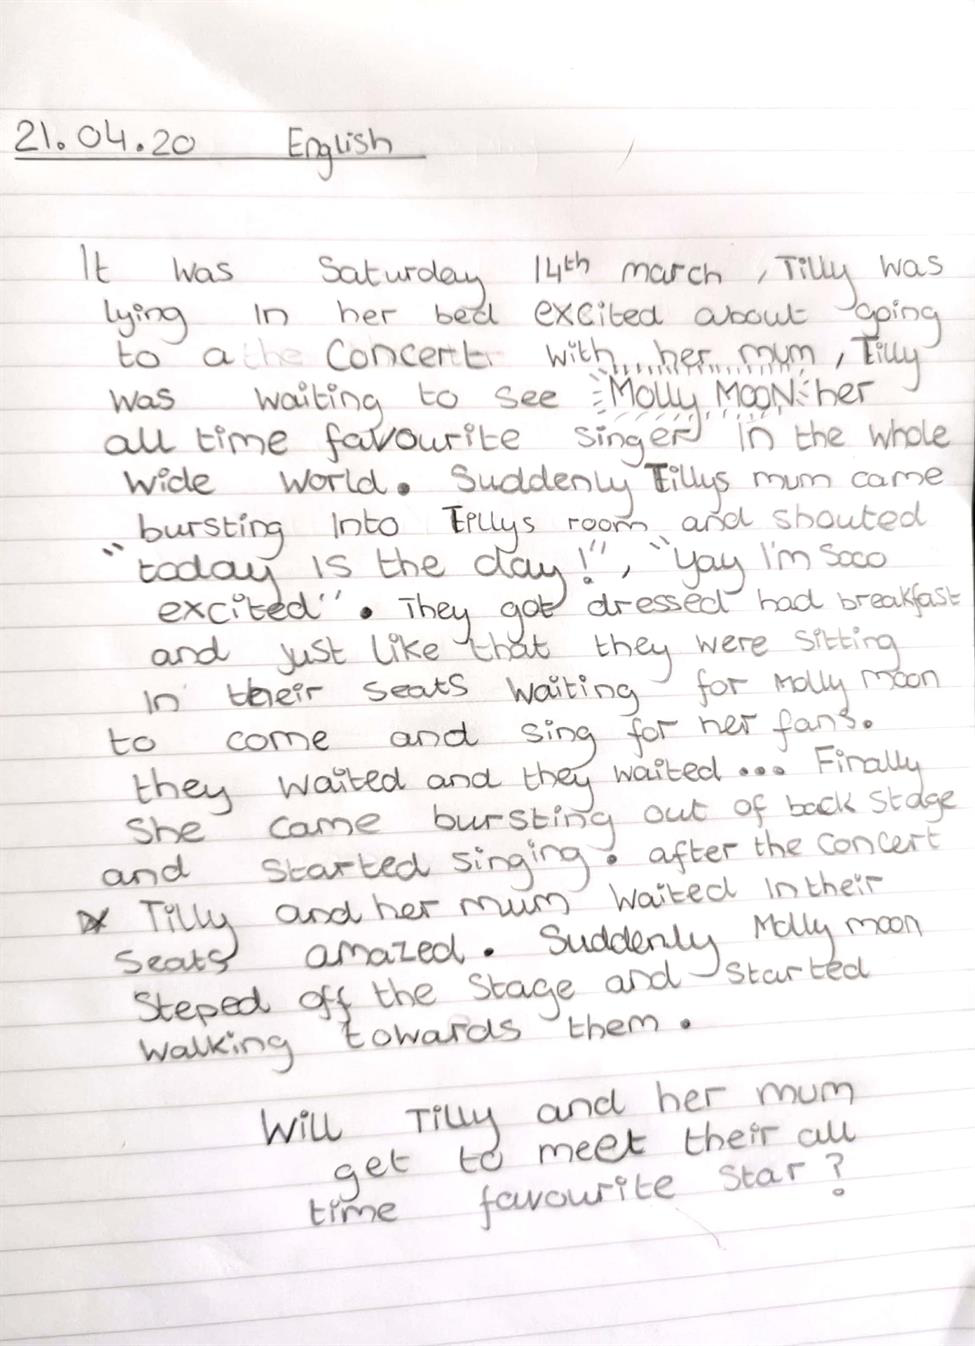 21.04.20 English
It was Saturday 14th march , Tilly was
lying in her bed excited about going
to a the Concert with her mum , Tilly
was waiting to see Molly MOON her
all time favourite singer in the whole
wide world. Suddenly Tillys mum came
bursting into Tillys room and shouted
"today is the day!", "Yay I'm Sooo
excited". They got dressed had breakfast
and just like that they were sitting
in their seats waiting for Molly moon
to come and sing for her fans.
they waited and they waited ... Finally
She came bursting out of back stage
and started singing. after the concert
Tilly and her mum waited in their
seats amazed. Suddenly Molly moon
Steped off the stage and started
walking towards them.
Will Tilly and her mum
get to meet their all
time favourite star?